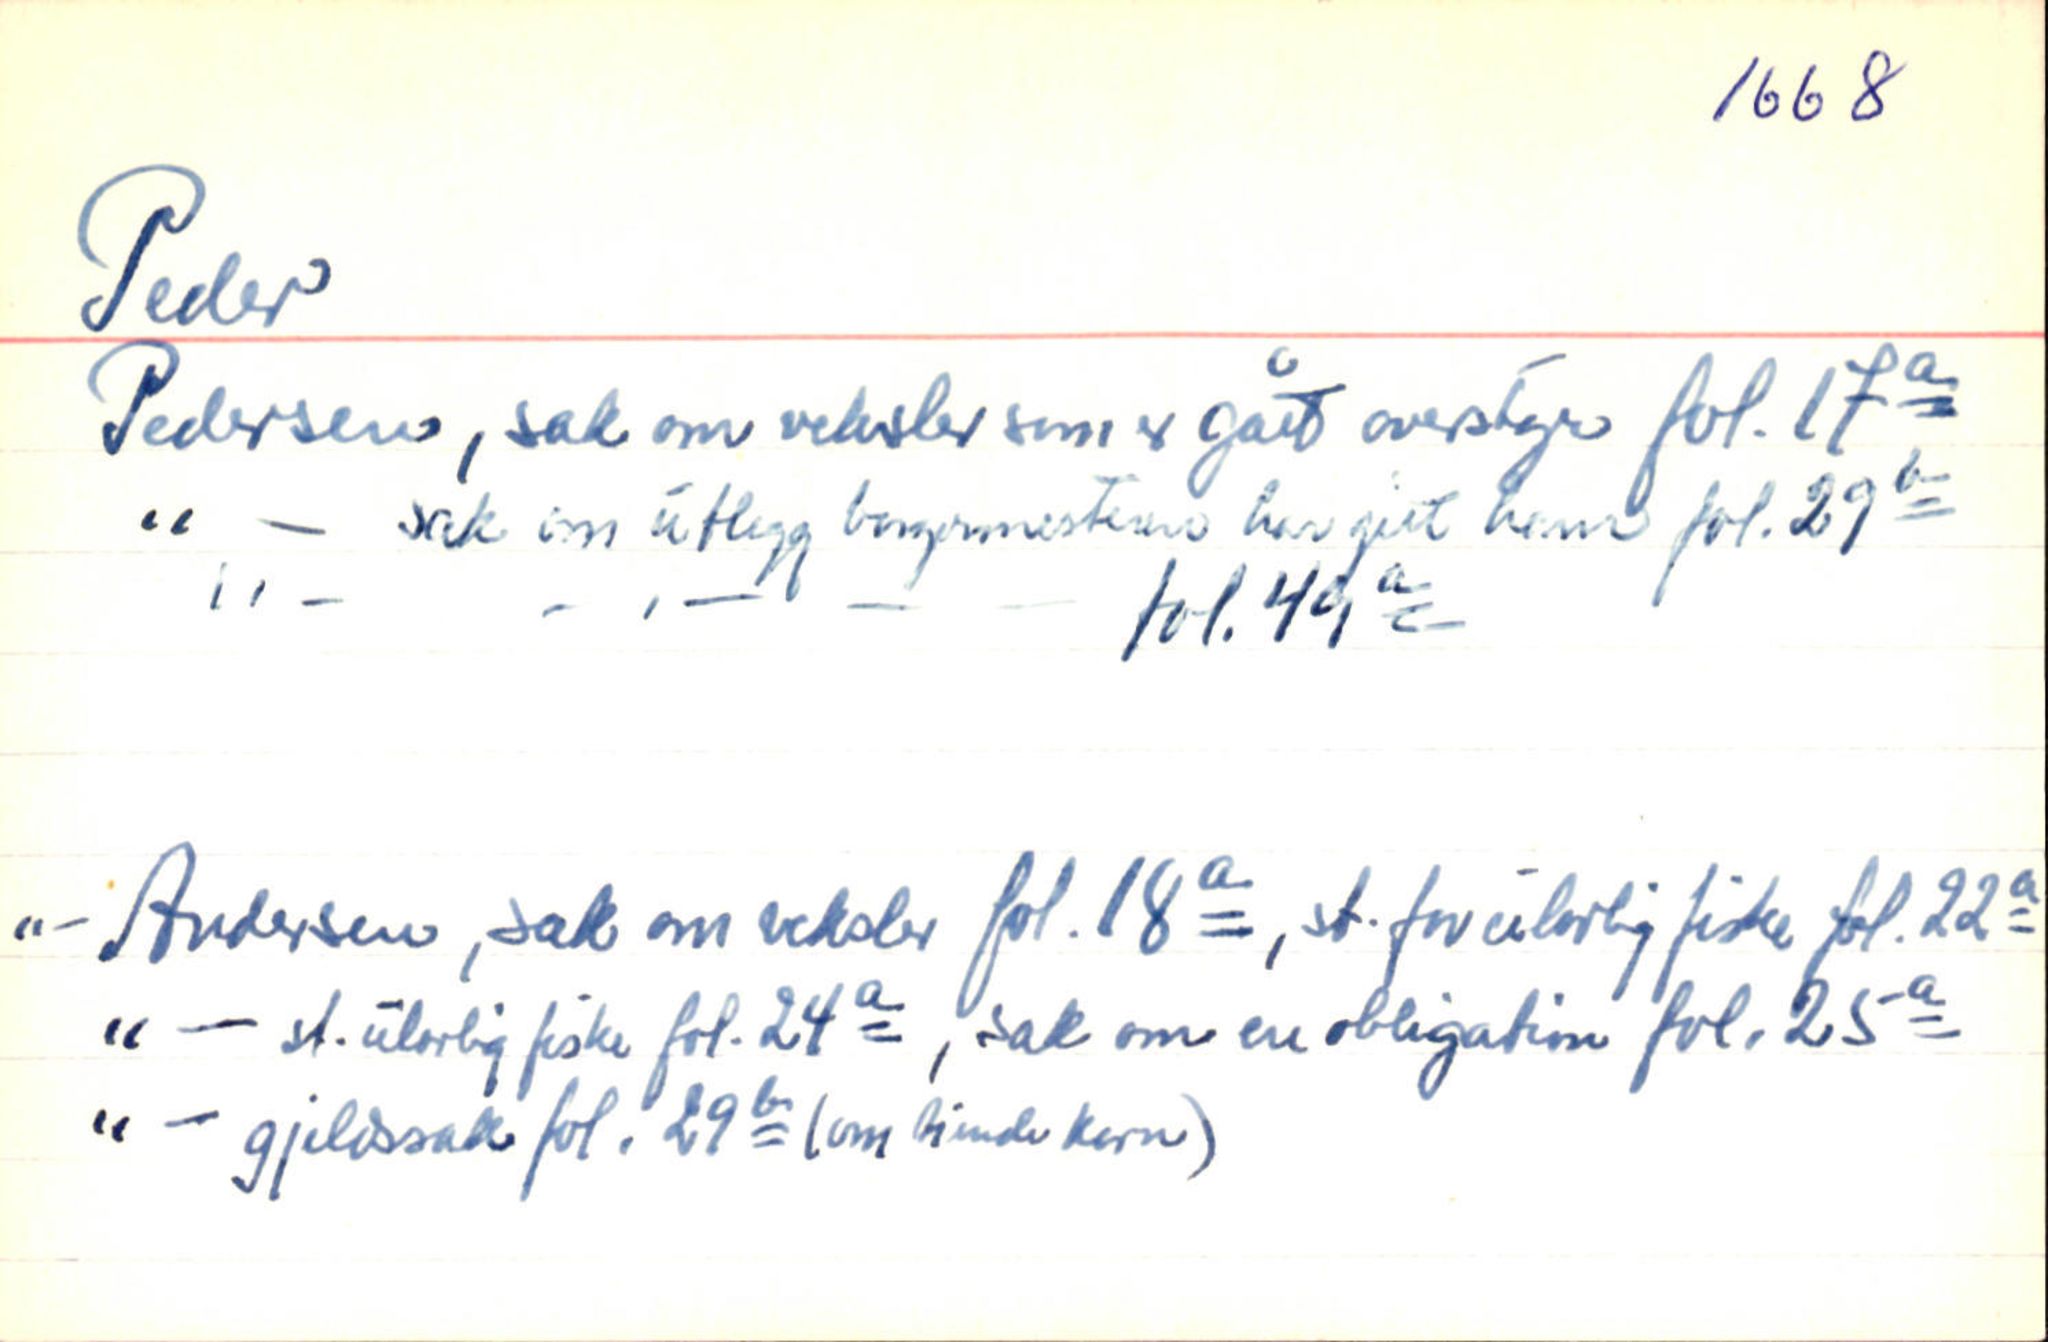 1668
Peder
Pedersen, sak om veksler som er gått overstyr fol. 17a
" — sak om utlegg borgermesteren har gitt ham fol. 29b
" — - , — — — fol. 49a
"- Andersen, sak om veksler fol. 18a, st. for ulovlig fiske fol. 22a
" — st. ulovlig fiske fol. 24a, sak om en obligation fol. 25a
" — gjeldssak fol. 29b (om korn)